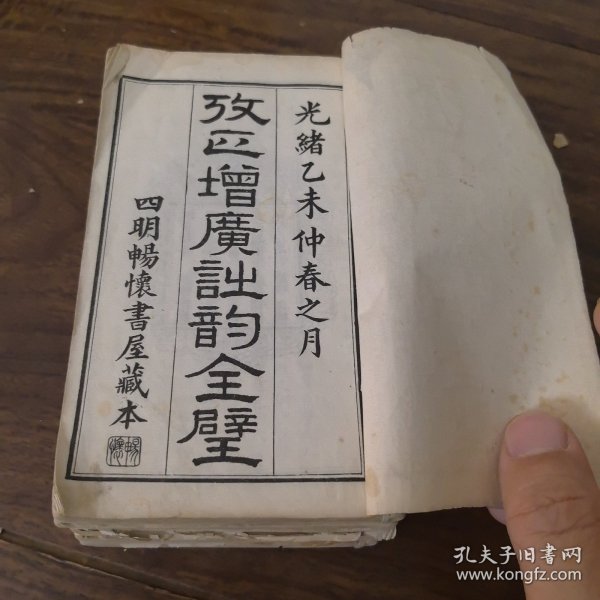 光緒乙未仲春之月
攷正增廣詩韵全璧
四明暢懷書屋藏本
暢懷
孔夫子旧書网
www.kongfz.com